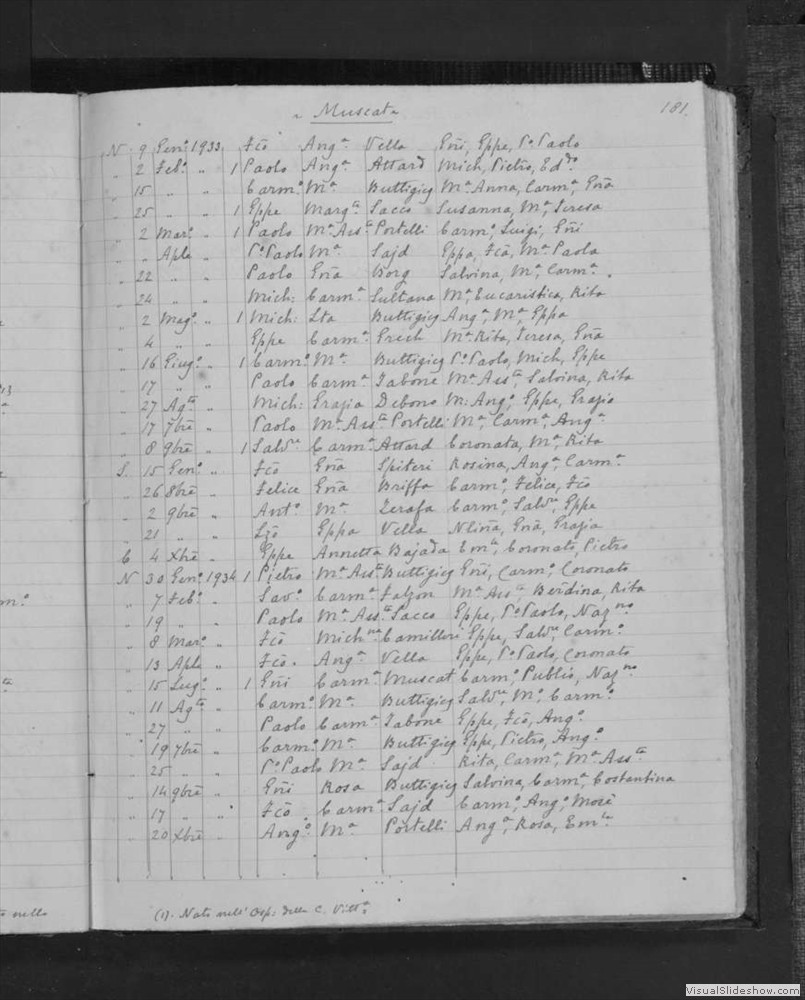 Muscat
181.
N 9 Genº. 1933 Fcõ Angª Vella Gñi, Eppe, Pº Paolo
" 2 Febº. " 1 Paolo Angª Attard Mich, Pietro, Edᵈº.
" 15 " " Carmº. Mª Buttigieg Mª Anna, Carmª, Gñã
" 25 " " 1 Eppe Margᵗᵃ Sacco Susanna, Mª, Teresa
" 2 Marº. " 1 Paolo Mª Assᵗᵃ Portelli Carmº, Luigi, Gñi
" " Aple " Pº Paolo Mª Sajd Eppa, Fcã, Mª Paola
" 22 " " Paolo Gñã Borg Salvina, Mª, Carmª.
" 24 " " Mich: Carmª Sultana Mª Eucaristica, Rita
" 2 Magº. " 1 Mich: Lta Buttigieg Angª, Mª, Eppa
" 4 " " Eppe Carmª Grech Mª Rita, Teresa, Gñã
" 16 Giugº. " 1 Carmº. Mª Buttigieg Pº Paolo, Mich, Eppe
" 17 " " Paolo Carmª Tabone Mª Assᵗᵃ, Salvina, Rita
" 27 Agᵗᵒ " Mich: Grazia Debono M: Angº, Eppe, Grazio
" 17 7brẽ " Paolo Mª Assᵗᵃ Portelli Mª, Carmª, Angª
" 8 9brẽ " 1 Salvʳᵉ Carmª Attard Coronata, Mª, Rita
S. 15 Genº. " Fcõ Gñã Spiteri Rosina, Angª, Carmª
" 26 8brẽ " Felice Gñã Briffa Carmº, Felice, Fcõ
" 2 9brẽ " Antº. Mª Zerafa Carmº, Salvʳᵉ, Eppe
" 21 " " Lzõ Eppa Vella Nlinã, Gñã, Grazia
C 4 Xbrẽ " Eppe Annetta Bajada Emˡᵃ, Coronato, Pietro
N 30 Genº. 1934 1 Pietro Mª Assᵗᵃ Buttigieg Gñi, Carmº, Coronato
" 7 Febº. " Savº. Carmª Falzon Mª Assᵗᵃ, Berdina, Rita
" 19 " " Paolo Mª Assᵗᵃ Sacco Eppe, Pº Paolo, Nazⁿº
" 8 Marº. " Fcõ Michⁿᵃ Camilleri Eppe, Salvʳᵉ, Carmº.
" 13 Aple " Fcõ. Angª Vella Eppe, Pº Paolo, Coronato
" 15 Lugº. " 1 Gñi Carmª Muscat Carmº, Publio, Nazⁿº
" 11 Agᵗᵒ " Carmº. Mª Buttigieg Salvʳᵉ, Mº, Carmº.
" 27 " " Paolo Carmª Tabone Eppe, Fcõ, Angº.
" 19 7brẽ " Carmº. Mª Buttigieg Eppe, Pietro, Angº.
" 25 " " Pº Paolo Mª Sajd Rita, Carmª, Mª Assᵗᵃ
" 14 9brẽ " Gñi Rosa Buttigieg Salvina, Carmª, Costantina
" 17 " " Fcõ Carmª Sajd Carmº, Angº, Mosè
" 20 Xbrẽ " Angº. Mª Portelli Angª, Rosa, Emˡᵃ
(1). Nato nell' Osp: della C. Vittª
VisualSlideshow.com